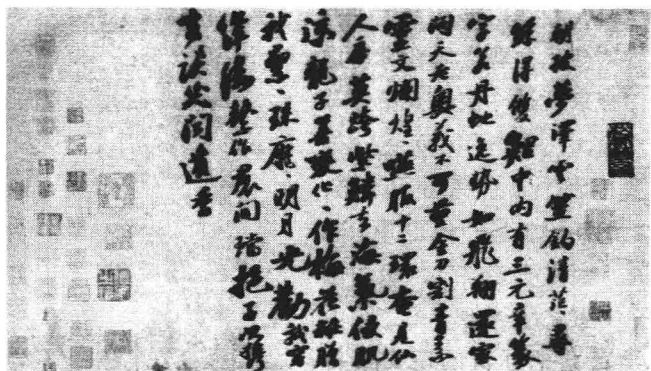 朝披夢澤雲笠釣清茫〻尋
絲得雙鯉中內有三元章篆
字若丹蛇逸勢如飛翔還家
問天老奧義不可量金刀割青素
靈文爛煌〻嚥服十二環奄見仙
人房莫跨紫鱗去海氣侵肌
涼龍子善變化〻作梅花妝贈
我累〻珠靡〻明月光勸我穿
絳縷繫作裾間襠挹子以攜
去談笑聞遺香